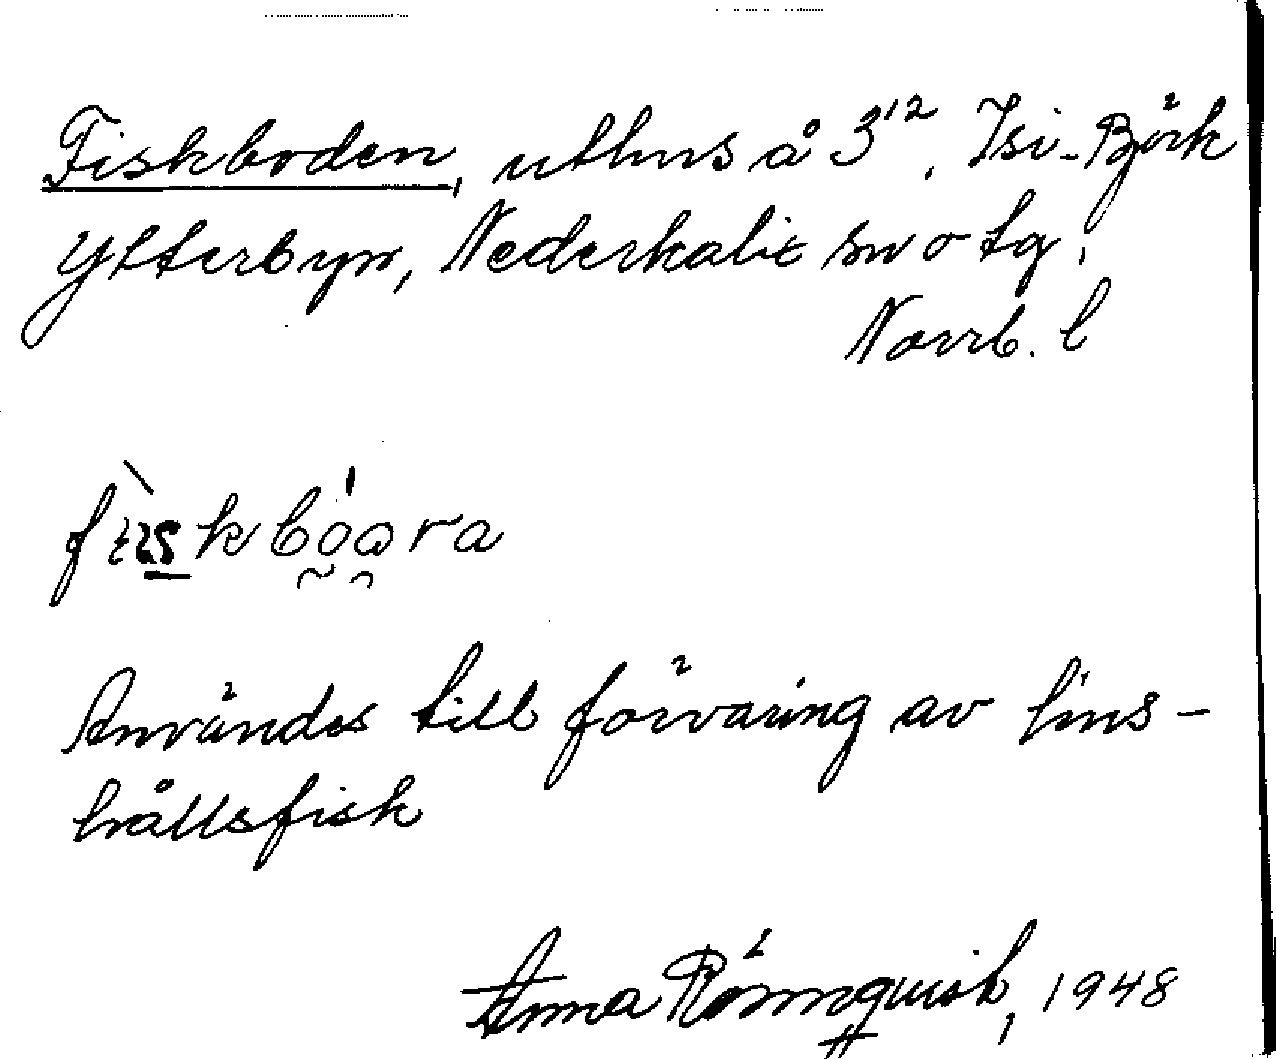 Fiskboden, uthus å 3¹², Isi-Björk
Ytterbyn, Nederkalix sn o tg.
Norrb. l
Användes till förvaring av hus-
hållsfisk
Anna Rönnquist, 1948